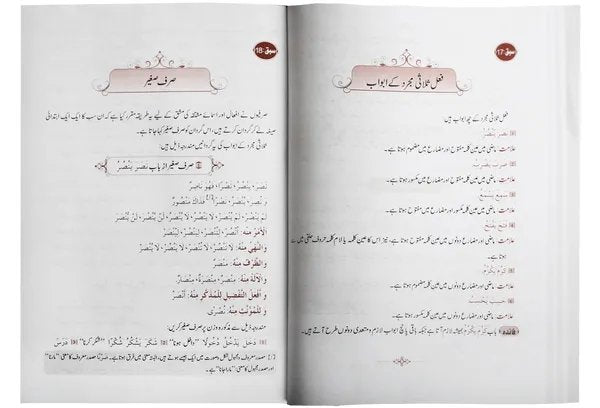 سبق:17
فعل ثلاثی مجرد کے ابواب
فعل ثلاثی مجرد کے چھ ابواب ہیں:
نَصَرَ يَنْصُرُ
علامت: ماضی میں عین کلمہ مفتوح اور مضارع میں مضموم ہوتا ہے۔
ضَرَبَ يَضْرِبُ
علامت: ماضی میں عین کلمہ مفتوح اور مضارع میں مکسور ہوتا ہے۔
سَمِعَ يَسْمَعُ
علامت: ماضی میں عین کلمہ مکسور اور مضارع میں مفتوح ہوتا ہے۔
فَتَحَ يَفْتَحُ
علامت: ماضی اور مضارع دونوں میں عین کلمہ مفتوح ہوتا ہے، نیز اس کا عین کلمہ یا لام کلمہ حروف حلقی میں سے
ہوتا ہے۔
كَرُمَ يَكْرُمُ
علامت: ماضی اور مضارع دونوں میں عین کلمہ مضموم ہوتا ہے۔
حَسِبَ يَحْسِبُ
علامت: ماضی اور مضارع دونوں میں عین کلمہ مکسور ہوتا ہے۔
فائدہ باب كَرُمَ يَكْرُمُ ہمیشہ لازم آتا ہے جبکہ باقی پانچ ابواب لازم و متعدی دونوں طرح آتے ہیں۔
سبق:18
صرف صغیر
صرفیوں نے افعال اور اسمائے مشتقہ کی مشق کے لیے یہ طریقہ مقرر کیا ہے کہ ان سب کا ایک ایک ابتدائی
صیغہ لے کر گردان کرتے ہیں، اس گردان کو صرف صغیر کہا جاتا ہے۔
ثلاثی مجرد کے ابواب کی یہ گردانیں مندرجہ ذیل ہیں:
1 صرف صغیر از باب نَصَرَ يَنْصُرُ
نَصَرَ، يَنْصُرُ، نَصْرًا، فَهُوَ نَاصِرٌ
وَ نُصِرَ، يُنْصَرُ، نَصْرًا[1]، فَذَاكَ مَنْصُورٌ
لَمْ يَنْصُرْ، لَمْ يُنْصَرْ، لَا يَنْصُرُ، لَا يُنْصَرُ، لَنْ يَنْصُرَ، لَنْ يُنْصَرَ
اَلْأَمْرُ مِنْهُ: اُنْصُرْ، لِتُنْصَرْ، لِيَنْصُرْ، لِيُنْصَرْ
وَالنَّهْيُ مِنْهُ: لَا تَنْصُرْ، لَا تُنْصَرْ، لَا يَنْصُرْ، لَا يُنْصَرْ
وَالظَّرْفُ مِنْهُ: مَنْصَرٌ
وَالْآلَةُ مِنْهُ: مِنْصَرٌ، مِنْصَرَةٌ، مِنْصَارٌ
وَ أَفْعَلُ التَّفْضِيلِ لِلْمُذَكَّرِ مِنْهُ: أَنْصَرُ
وَ لِلْمُؤَنَّثِ مِنْهُ: نُصْرٰى
مندرجہ ذیل سے مذکورہ وزن پر صرف صغیر کریں:
1 دَخَلَ يَدْخُلُ دُخُولًا "داخل ہونا" 2 شَكَرَ يَشْكُرُ شُكْرًا "شکر کرنا" 3 دَرَسَ
[1] مصدر معروف و مجہول شکل و صورت میں ایک جیسے ہوتے ہیں، البتہ معنی میں فرق ہوتا ہے۔ مصدر معروف کا معنی "مارنا"
اور مصدر مجہول کا معنی "مارا جانا" ہے۔